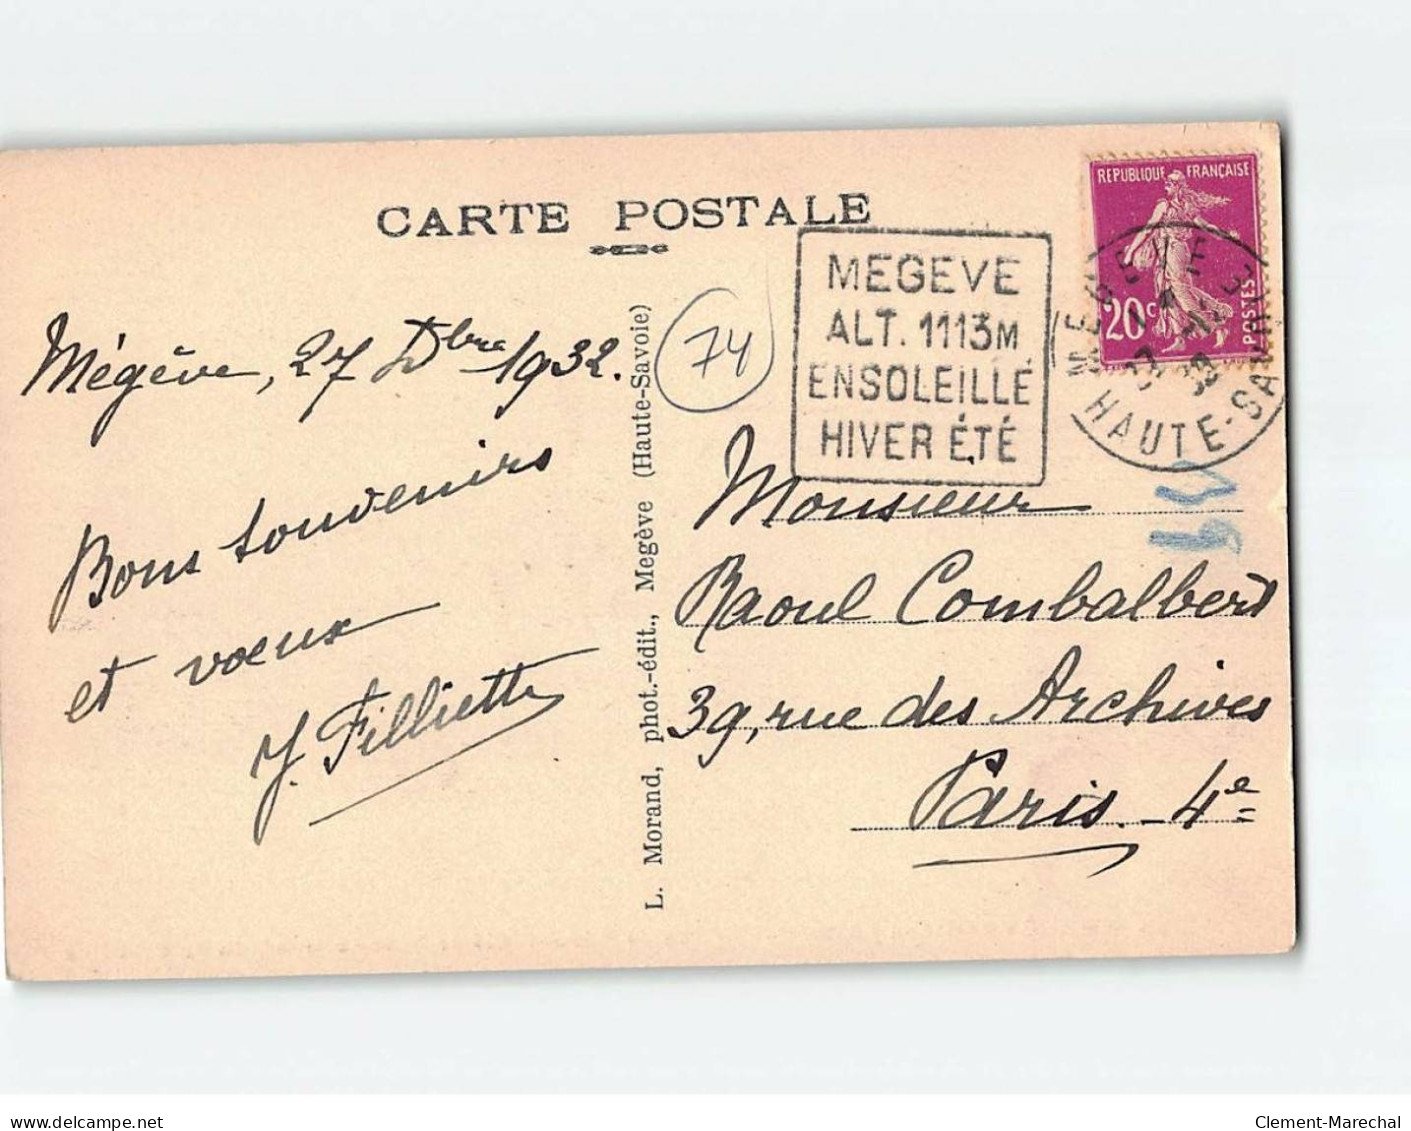 CARTE POSTALE
REPUBLIQUE FRANÇAISE
20c
POSTES
MEGEVE
ALT. 1113M
ENSOLEILLÉ
HIVER ÉTÉ
MEGEVE
HAUTE-SAVOIE
74
Mégève, 27 Dbre 1932.
Bons souvenirs
et voeux
J. Filliette
L. Morand, phot.-édit., Megève (Haute-Savoie)
Monsieur
Raoul Combalbert
39, rue des Archives
Paris - 4e
delcampe.net
Clement-Marechal